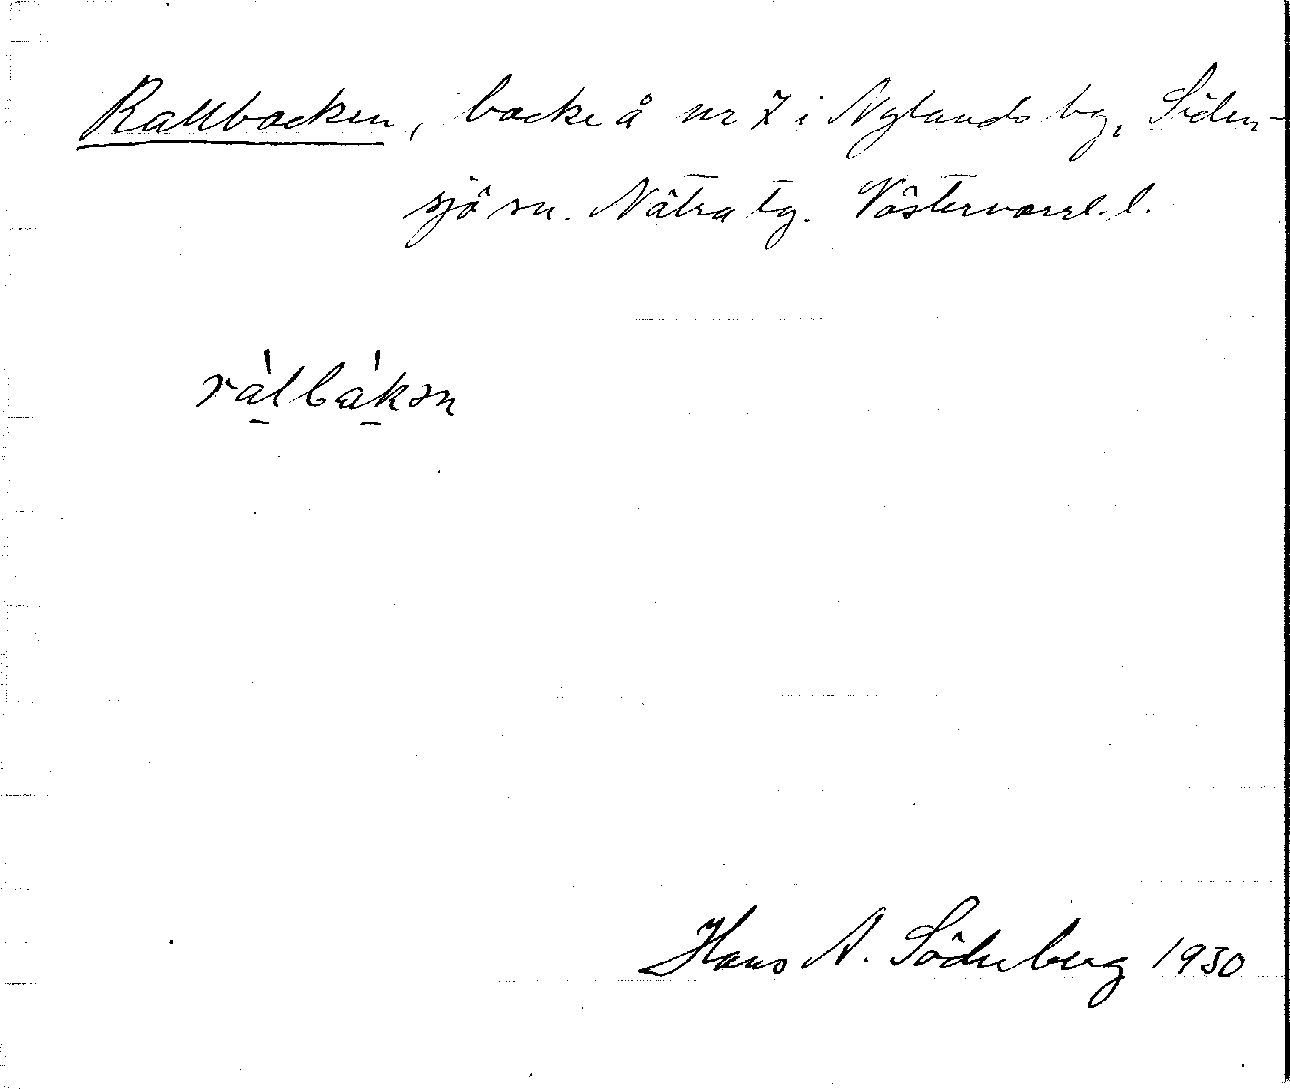 Rallbacken, backe å nr 7 i Nylands by, Siden-
sjö sn. Nätra tg. Västernorrl. l.
ràlbàkən
Hans A. Söderberg 1930